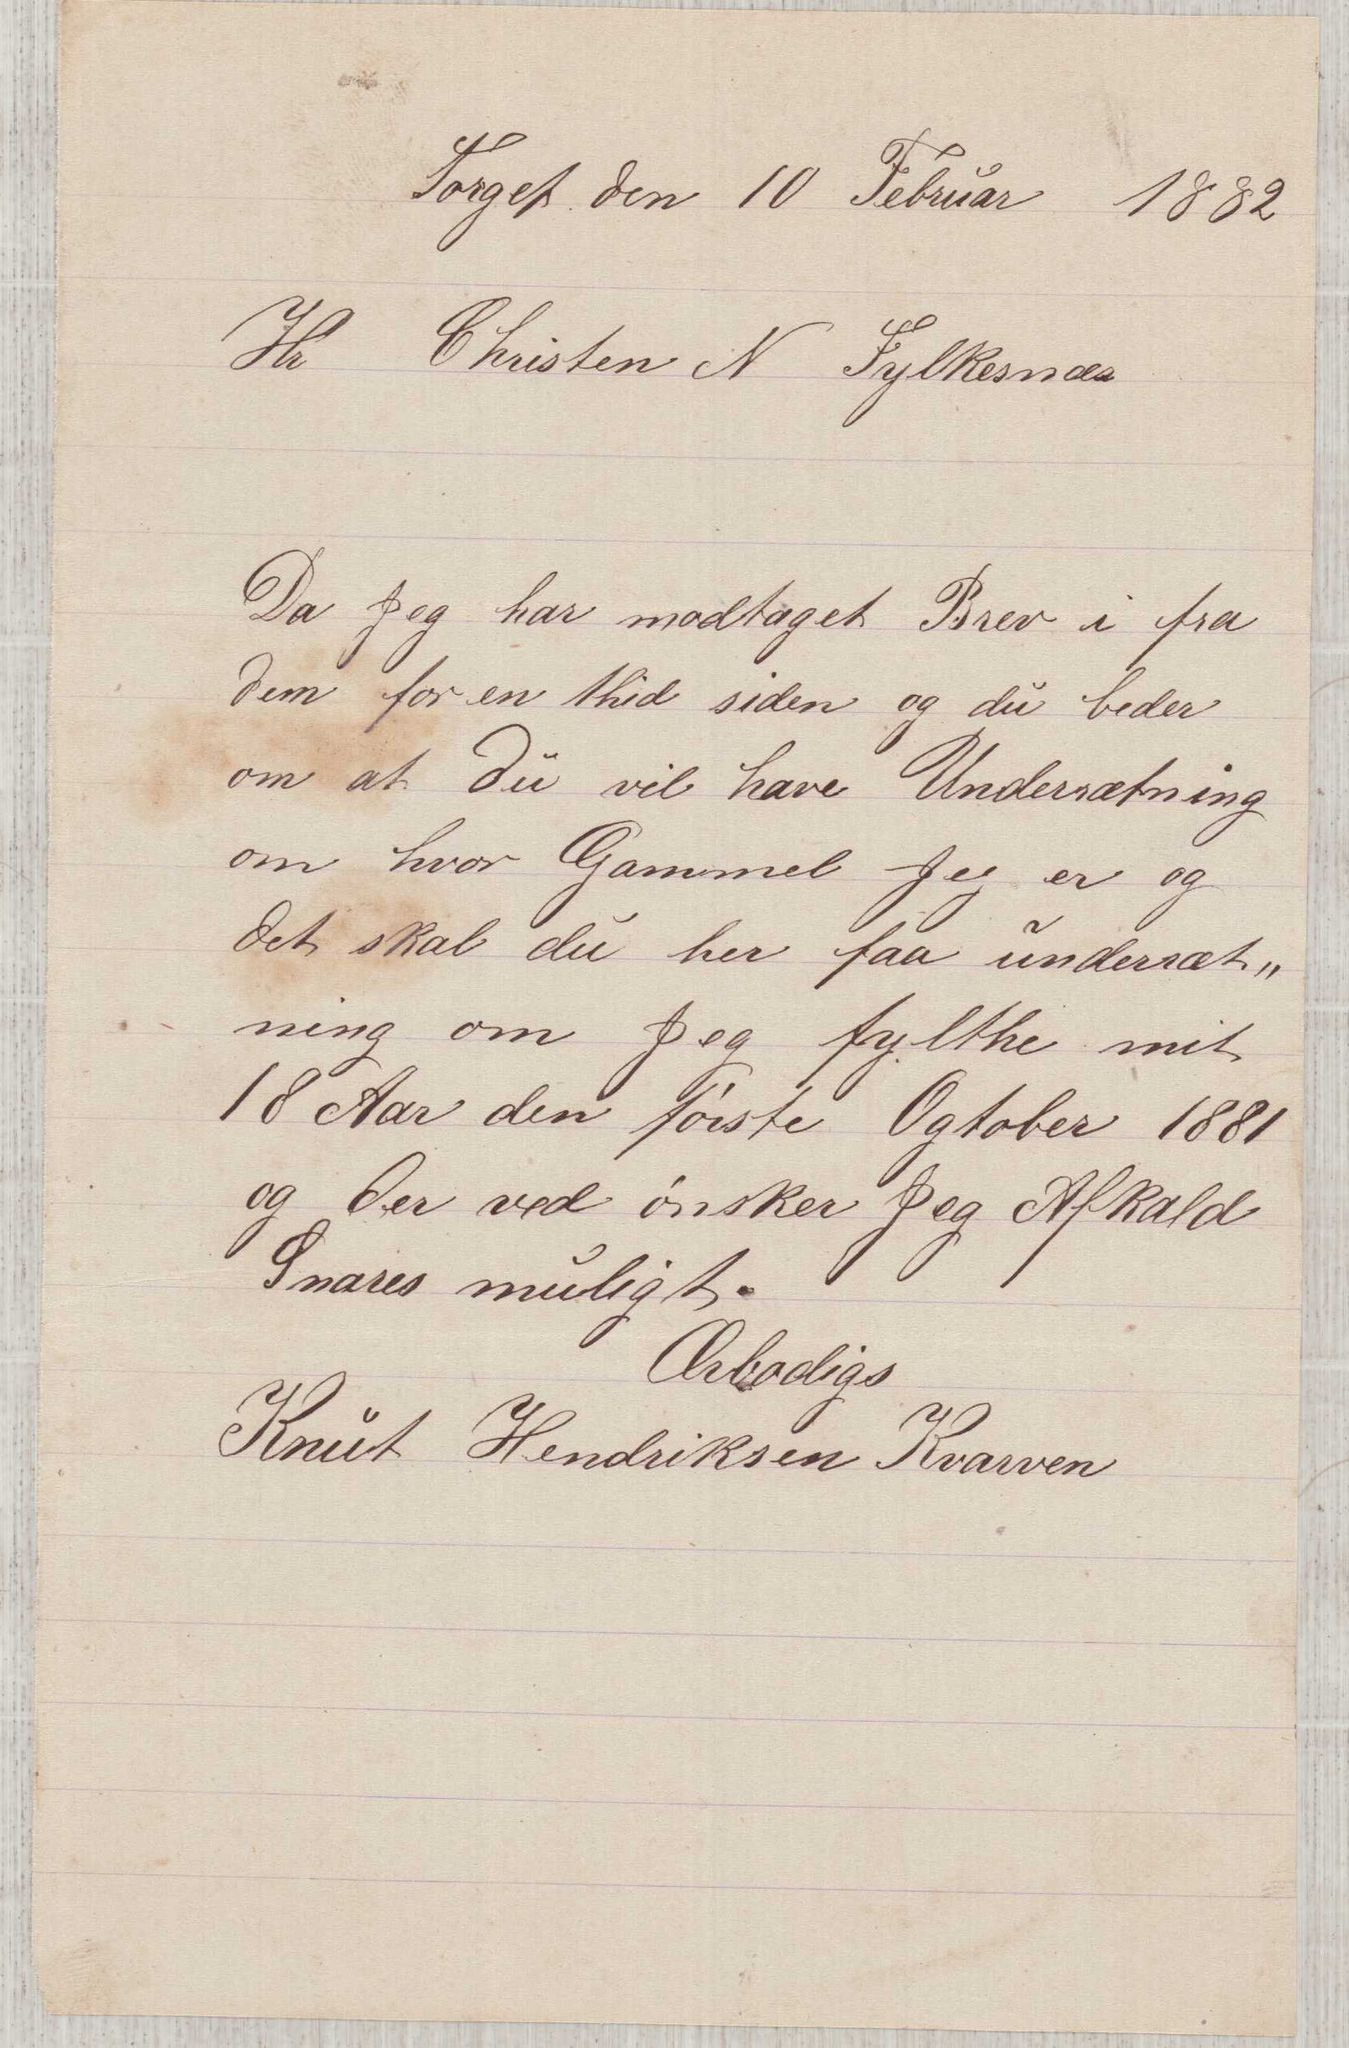 Torget den 10 Februar 1882
Hr Christen N Fylkesnæs
Da Jeg har modtaget Brev i fra
dem for en thid siden og du beder
om at du vil have Underrætning
om hvor Gammel Jeg er og
det skal du her faa underræt„
ning om Jeg fylthe mit
18 Aar den förste Ogtober 1881
og der ved önsker Jeg Afkald
Snares muligt.
Ærbodigs
Knut Hendriksen Kvarven